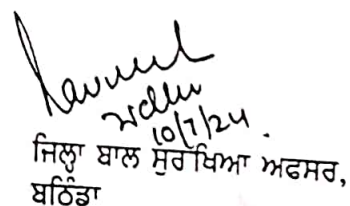 10/7/24.
ਜਿਲ੍ਹਾ ਬਾਲ ਸੁਰੱਖਿਆ ਅਫਸਰ,
ਬਠਿੰਡਾ